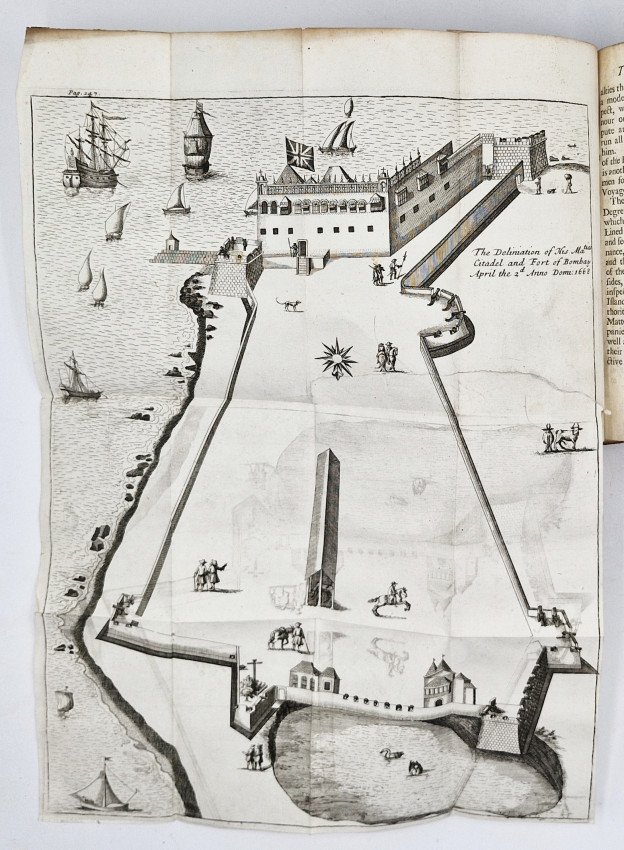 Pag. 147.
The Deliniation of His Ma^ties
Citadel and Fort of Bombay
April the 2^d Anno Domi: 166
T
alties th
a mode
pect, w
nour o
pute a
run all
him.
of the
is anoth
men fo
Voyag
The
Degre
which
Lined
and se
mine,
and th
of the
sides,
inspe
Island
thorit
Matte
panie
well a
their
ctive